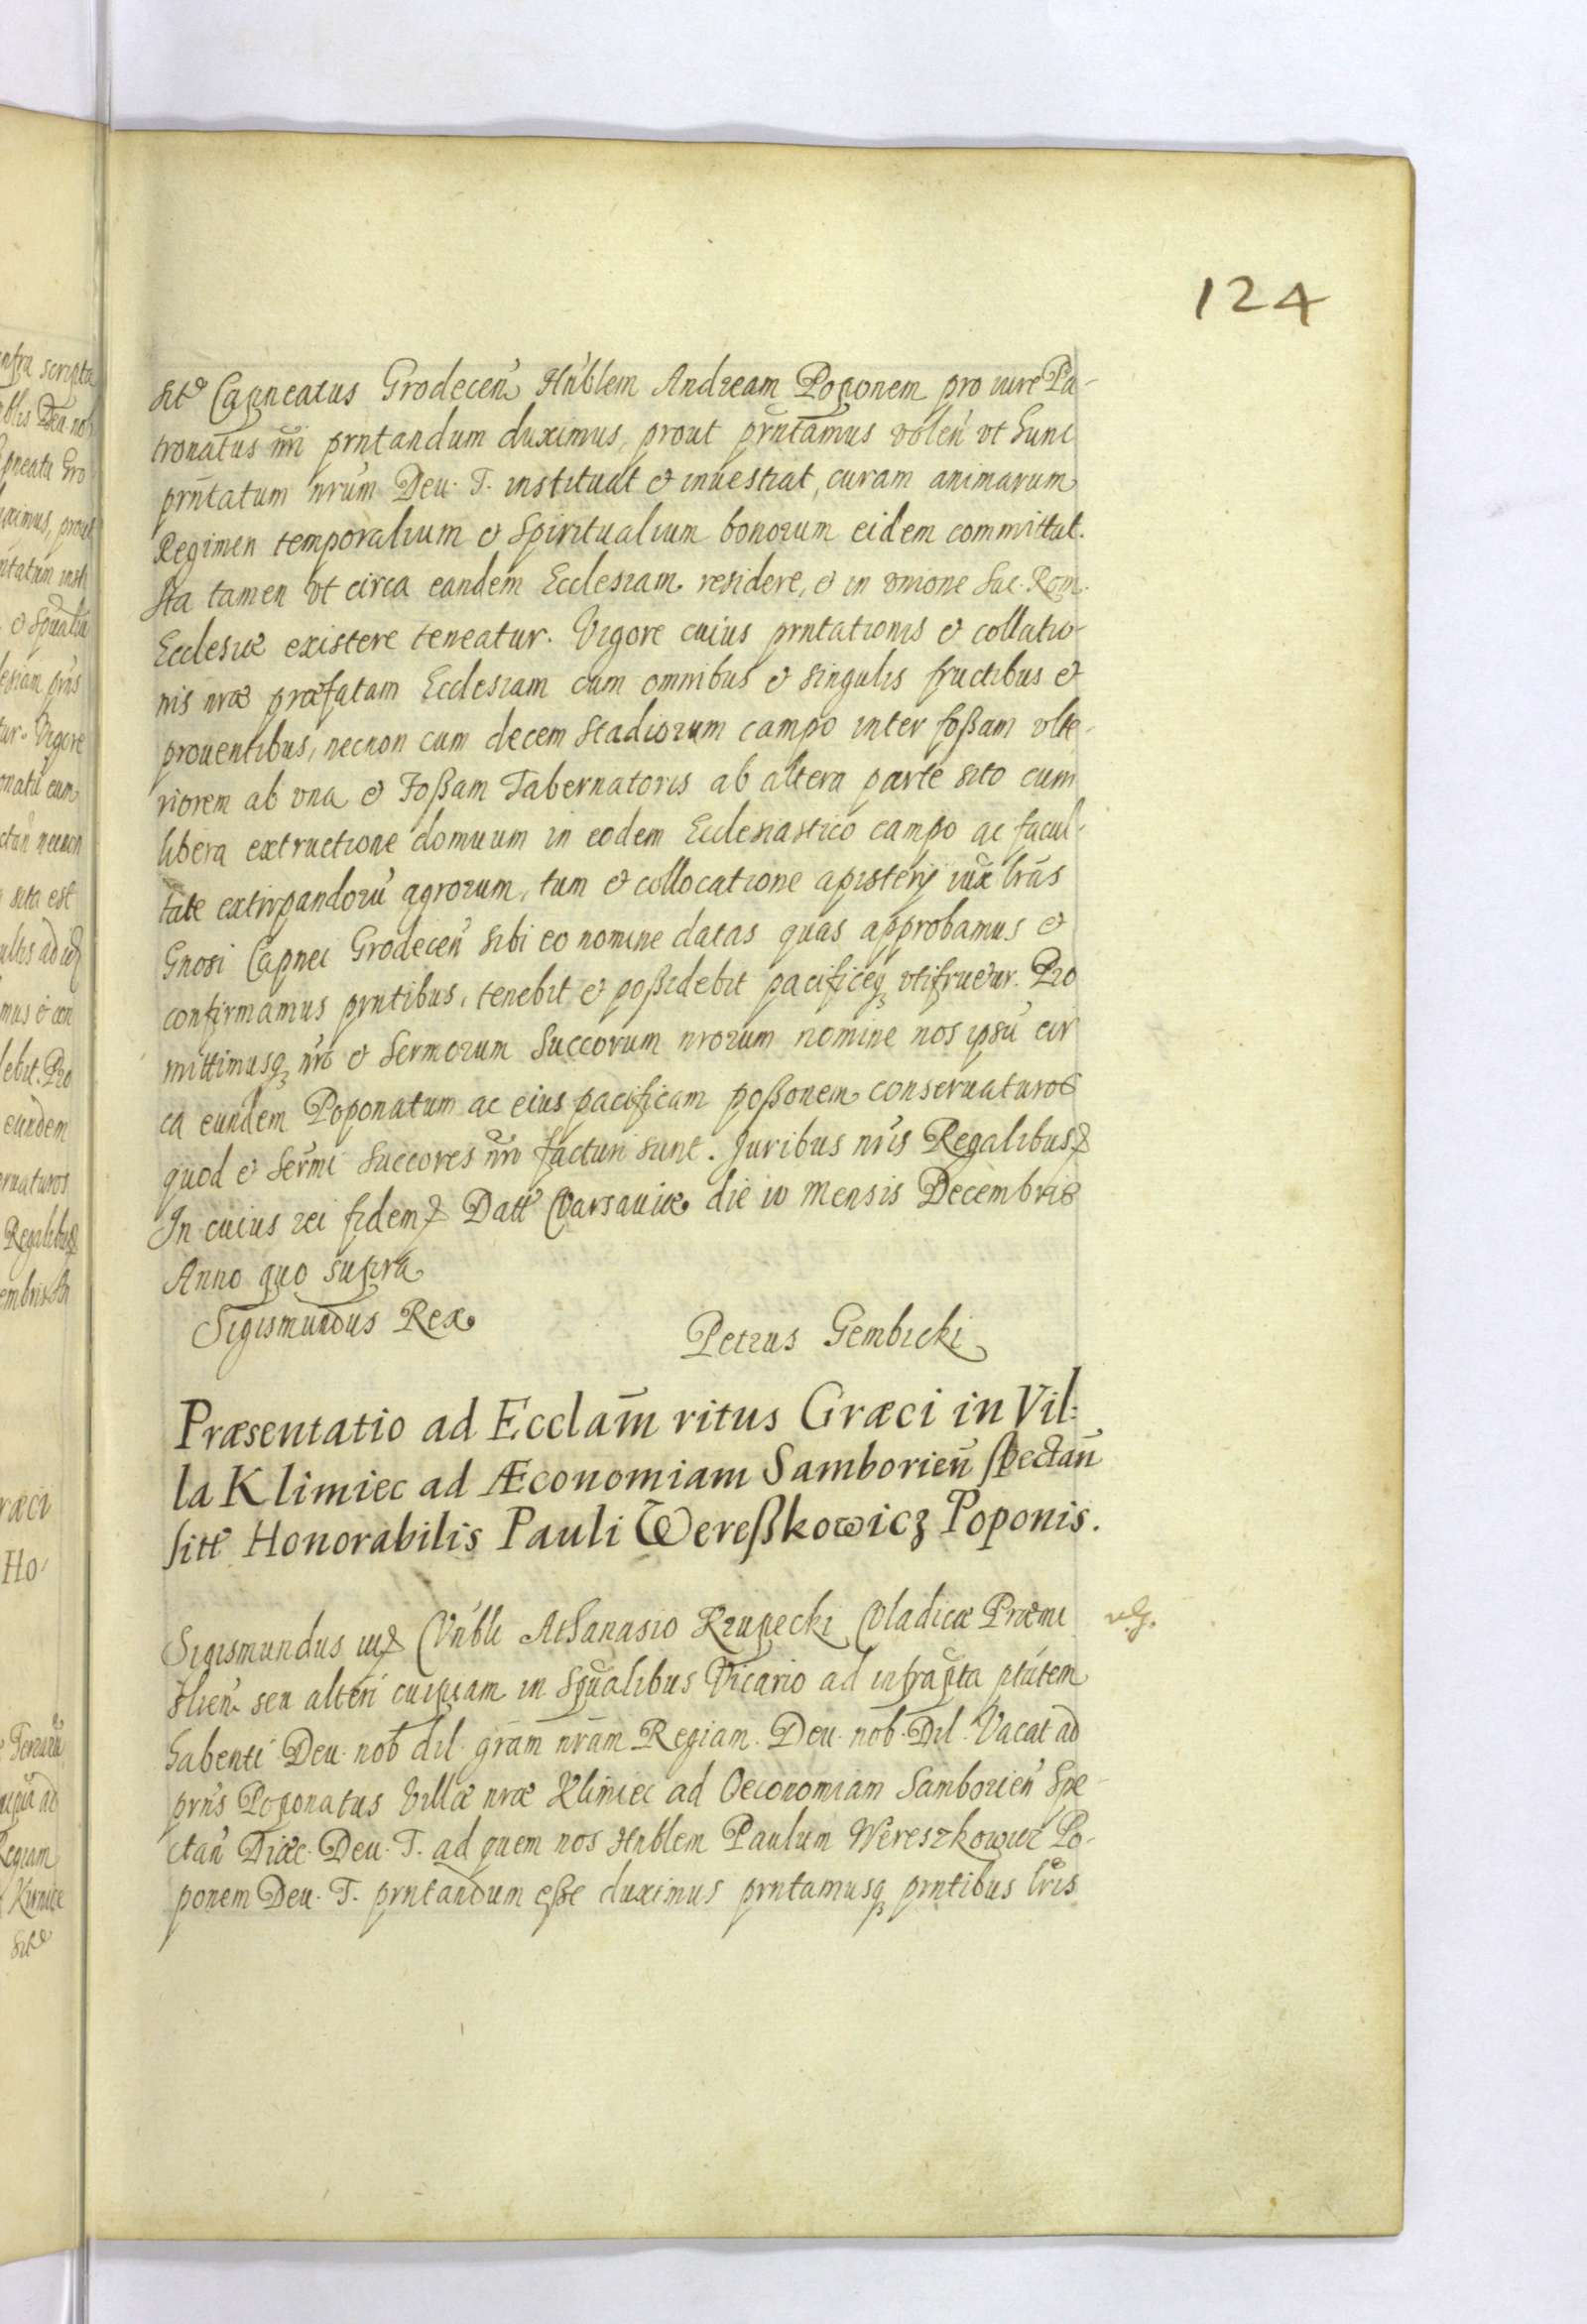 124
sitę Capneatus Grodecen̄ Hn̄blem Andream Poponem pro iure Pa-
tronatus nr̄i prn̄tandum duximus, prout prn̄tamus volen̄ vt hunc
prn̄tatum nrūm Deu. T. instituat et inuestiat, curam animarum
Regimen temporalium et Spiritualium bonorum eidem committat.
Ita tamen vt circa eandem Ecclesiam residere, et in vnione Sac. Rom.
Ecclesiæ existere teneatur. Vigore cuius prntationis et collatio-
nis nræ præfatam Ecclesiam cum omnibus et singulis fructibus et
prouentibus, necnon cum decem stadiorum campo inter foßam vlte-
riorem ab vna et Foßam Tabernatoris ab altera parte sito cum
libera extructione domuum in eodem Ecclesiastico campo ac facul-
tate extirpandorū agrorum, tum et collocatione apisterij iux̄ lrās
Gnosi Capnei Grodecen̄ sibi eo nomine datas quas approbamus et
confirmamus prntibus, tenebit et poßidebit pacificeq₃ vtifruetur. Pro
mittimusq₃ nr̄o et Sermorum Succorum nrorum nomine nos ipsū cir
ca eundem Poponatum ac eius pacificam poßonem conseruaturos
quod et Serm̄i Succores nr̄i facturi sunt. Juribus nr̄is Regalibus &
In cuius rei fidem & Datt Varsauiæ die 10 Mensis Decembris
Anno quo supra
Sigismundus Rex
Petrus Gembicki
Præsentatio ad Ecclam̄ ritus Græci in Vil=
la Klimiec ad Æconomiam Samborien̄ spectan̄
sitt Honorabilis Pauli Wereßkowicz Poponis.
Sigismundus iii & Vn̄bli Athanasio Krupecki Vladicæ Præmi
slien̄ seu alteri cuipiam in Spūalibus Vicario ad infrapta ptātem
habenti Deu. nob dil. grām nrām Regiam. Deu. nob. Dil. Vacat ad
prn̄s Poponatus Villæ nræ Klimiec ad Oeconomiam Samborien̄ Spe-
ctan̄ Diæc. Deu. T. ad quem nos Hnblem Paulum Wereszkowicz Po-
ponem Deu. T. prntandum eße duximus prntamusq₃ prntibus lrīs